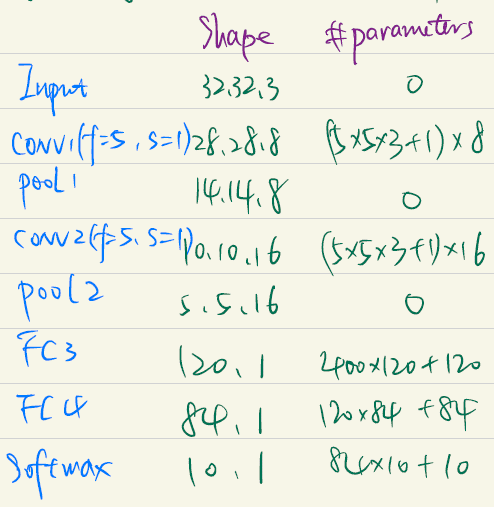 Shape #parameters
Input 32.32.3 0
CONV1(f=5, S=1) 28.28.8 (5×5×3+1)×8
pool1 14.14.8 0
CONV2(f=5. S=1) 10.10.16 (5×5×3+1)×16
pool2 5.5.16 0
FC3 120.1 2400×120+120
FC4 84.1 120×84+84
Softmax 10.1 84×10+10